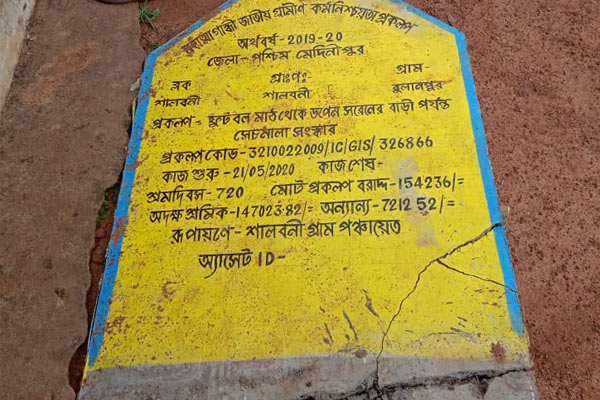 মহাত্মা গান্ধী জাতীয় গ্রামীণ কর্মনিশ্চয়তা প্রকল্প
অর্থবর্ষ - 2019-20
জেলা - পশ্চিম মেদিনীপুর
ব্লক গ্রাঃপঃ গ্রাম-
শালবনী শালবনী বুলানপুর
প্রকল্প - বন মাঠ থেকে তপেন সরেনের বাড়ী পর্যন্ত
সেচনালা সংস্কার
প্রকল্প কোড - 3210022009/IC/GIS/326866
কাজ শুরু - 21/05/2020 কাজ শেষ-
শ্রমদিবস - 720 মোট প্রকল্প বরাদ্দ - 154236/=
অদক্ষ শ্রমিক - 147023.82/= অন্যান্য - 7212.52/=
রূপায়ণে - শালবনী গ্রাম পঞ্চায়েত
অ্যাসেট ID-